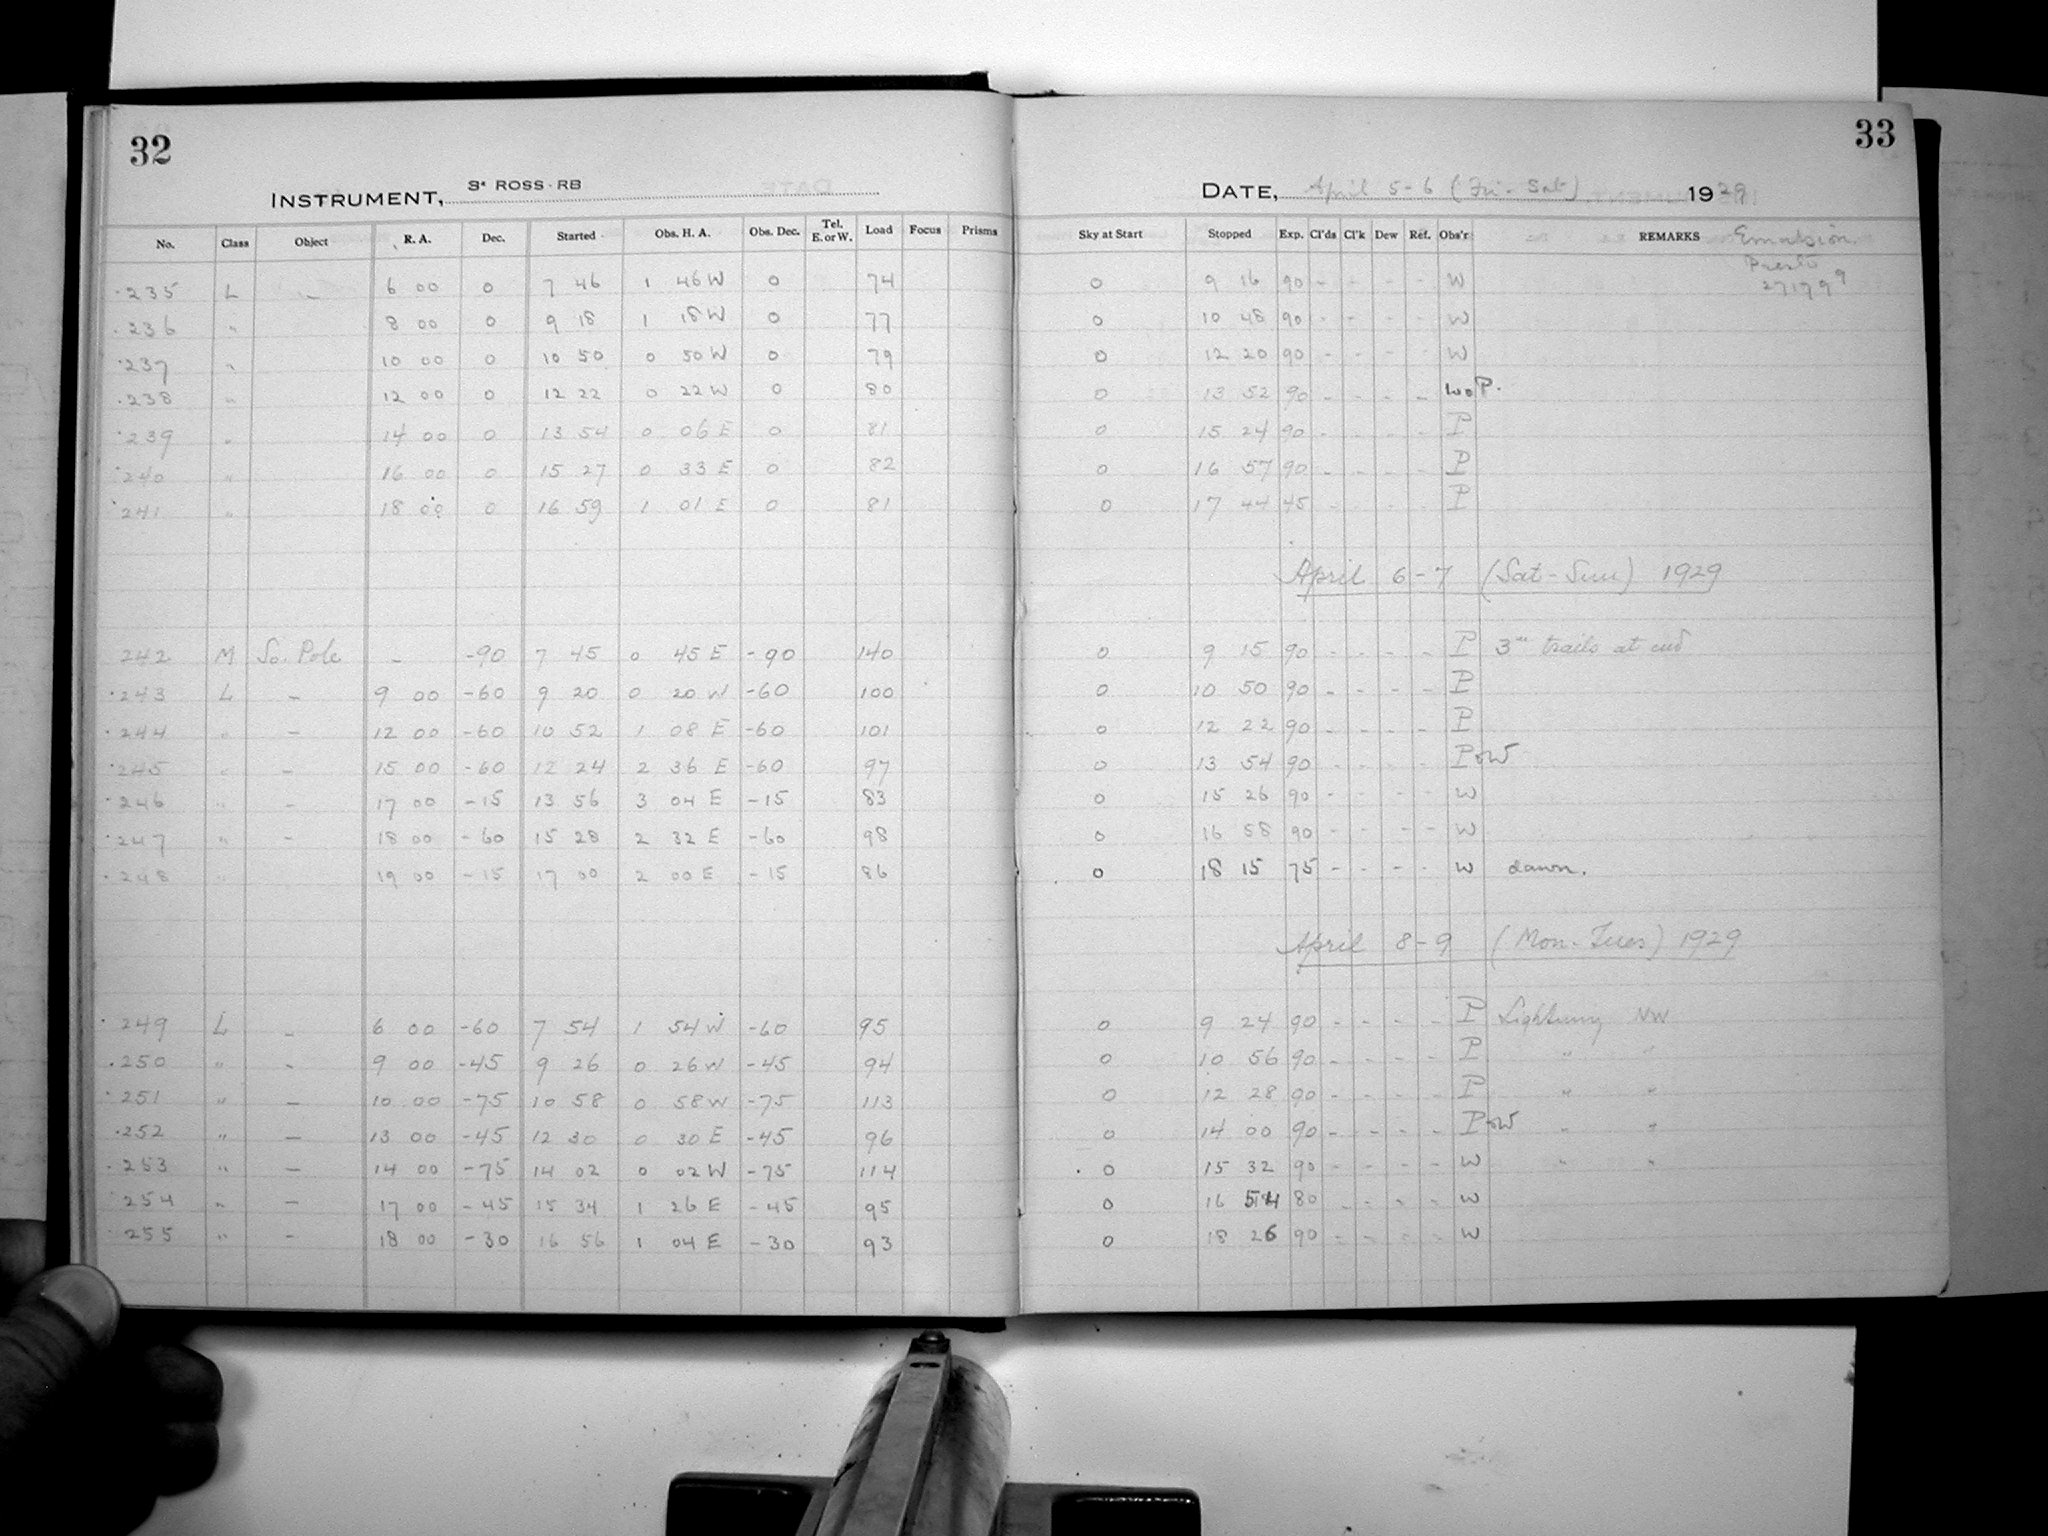 32
INSTRUMENT, 3" ROSS-RB
No. Class Object R. A. Dec. Started Obs. H. A. Obs. Dec. Tel. E. or W. Load Focus Prisms
33
DATE, April 5-6 (Fri-Sat) 1929
Sky at Start Stopped Exp. Cl'ds Cl'k Dew Ref. Obs'r REMARKS Emulsion
Presto
235 L – 6 00 0 7 46 1 46 W 0 74 0 9 16 90 - - - - W
236 " 8 00 0 9 18 1 18 W 0 77 0 10 48 90 - - - - W
237 " 10 00 0 10 50 0 50 W 0 79 0 12 20 90 - - - - W
238 " 12 00 0 12 22 0 22 W 0 80 0 13 52 90 - - - - W P.
239 " 14 00 0 13 54 0 06 E 0 81 0 15 24 90 - - - - P
240 " 16 00 0 15 27 0 33 E 0 82 0 16 57 90 - - - - P
241 " 18 00 0 16 59 1 01 E 0 81 0 17 44 45 - - - - P
April 6-7 (Sat-Sun) 1929
242 M So. Pole – -90 7 45 0 45 E -90 140 0 9 15 90 - - - - P 3 trails at end
243 L – 9 00 -60 9 20 0 20 W -60 100 0 10 50 90 - - - - P
244 " – 12 00 -60 10 52 1 08 E -60 101 0 12 22 90 - - - - P
245 " – 15 00 -60 12 24 2 36 E -60 97 0 13 54 90 - - - - P W
246 " – 17 00 -15 13 56 3 04 E -15 83 0 15 26 90 - - - - W
247 " – 18 00 -60 15 28 2 32 E -60 98 0 16 58 90 - - - - W
248 " 19 00 -15 17 00 2 00 E -15 86 0 18 15 75 - - - - W dawn.
April 8-9 (Mon-Tues) 1929
249 L – 6 00 -60 7 54 1 54 W -60 95 0 9 24 90 - - - - P Lightning NW
250 " – 9 00 -45 9 26 0 26 W -45 94 0 10 56 90 - - - - P " "
251 " – 10 00 -75 10 58 0 58 W -75 113 0 12 28 90 - - - - P " "
252 " – 13 00 -45 12 30 0 30 E -45 96 0 14 00 90 - - - - P W " "
253 " – 14 00 -75 14 02 0 02 W -75 114 0 15 32 90 - - - - W " "
254 " – 17 00 -45 15 34 1 26 E -45 95 0 16 54 80 - - - - W
255 " – 18 00 -30 16 56 1 04 E -30 93 0 18 26 90 - - - - W